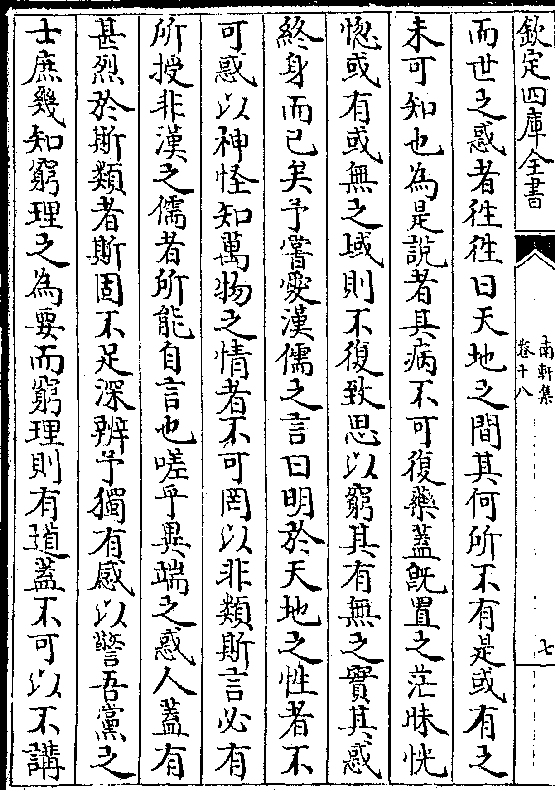 欽定四庫全書
南軒集
卷十八
七
而世之惑者徃徃曰天地之間其何所不有是或有之
未可知也為是說者其病不可復藥蓋既置之茫昧恍
惚或有或無之域則不復致思以窮其有無之實其惑
終身而已矣予嘗愛漢儒之言曰明於天地之性者不
可惑以神怪知萬物之情者不可罔以非類斯言必有
所授非漢之儒者所能自言也嗟乎異端之惑人蓋有
甚烈於斯類者斯固不足深辨予獨有感以警吾黨之
士庶幾知窮理之為要而窮理則有道蓋不可以不講